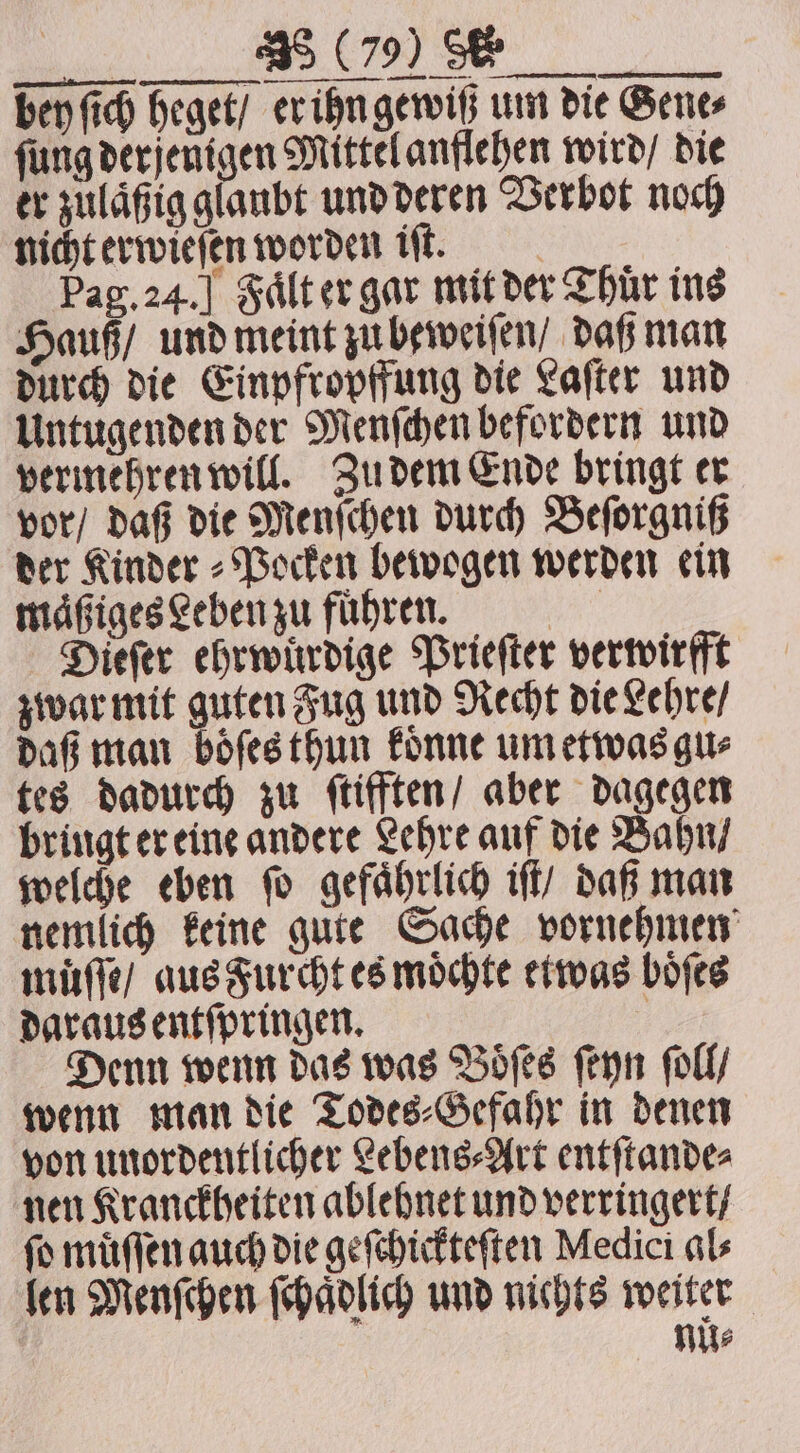 (79)
bey ſich heget/ er ihn gewiß um die Gene⸗
ſung derjenigen Mittel anflehen wird/ die
er zulaͤßig glaubt und deren Verbot noch
nicht erwieſen worden iſt.
Pag. 24.] Faͤlt er gar mit der Thuͤr ins
Hauß/ und meint zu beweiſen/ daß man
durch die Einpfropffung die Laſter und
Untugenden der Menſchen befordern und
vermehren will. Zu dem Ende bringt er
vor/ daß die Menſchen durch Beſorgniß
der Kinder⸗Pocken bewogen werden ein
maͤßiges Leben zu fuͤhren.
Dieſer ehrwuͤrdige Prieſter verwirfft
zwar mit guten Fug und Recht die Lehre/
daß man boͤſes thun koͤnne um etwas gu⸗
tes dadurch zu ſtifften/ aber dagegen
bringt er eine andere Lehre auf die Bahn/
welche eben ſo gefaͤhrlich iſt/ daß man
nemlich keine gute Sache vornehmen
muͤſſe/ aus Furcht es moͤchte etwas boͤſes
daraus entſpringen.
Denn wenn das was Boͤſes ſeyn ſoll/
wenn man die Todes⸗Gefahr in denen
von unordentlicher Lebens⸗Art entſtande⸗
nen Kranckheiten ablehnet und verringert/
ſo muͤſſen auch die geſchickteſten Medici al⸗
len Menſchen ſchaͤdlich und nichts weiter
nuͤ⸗